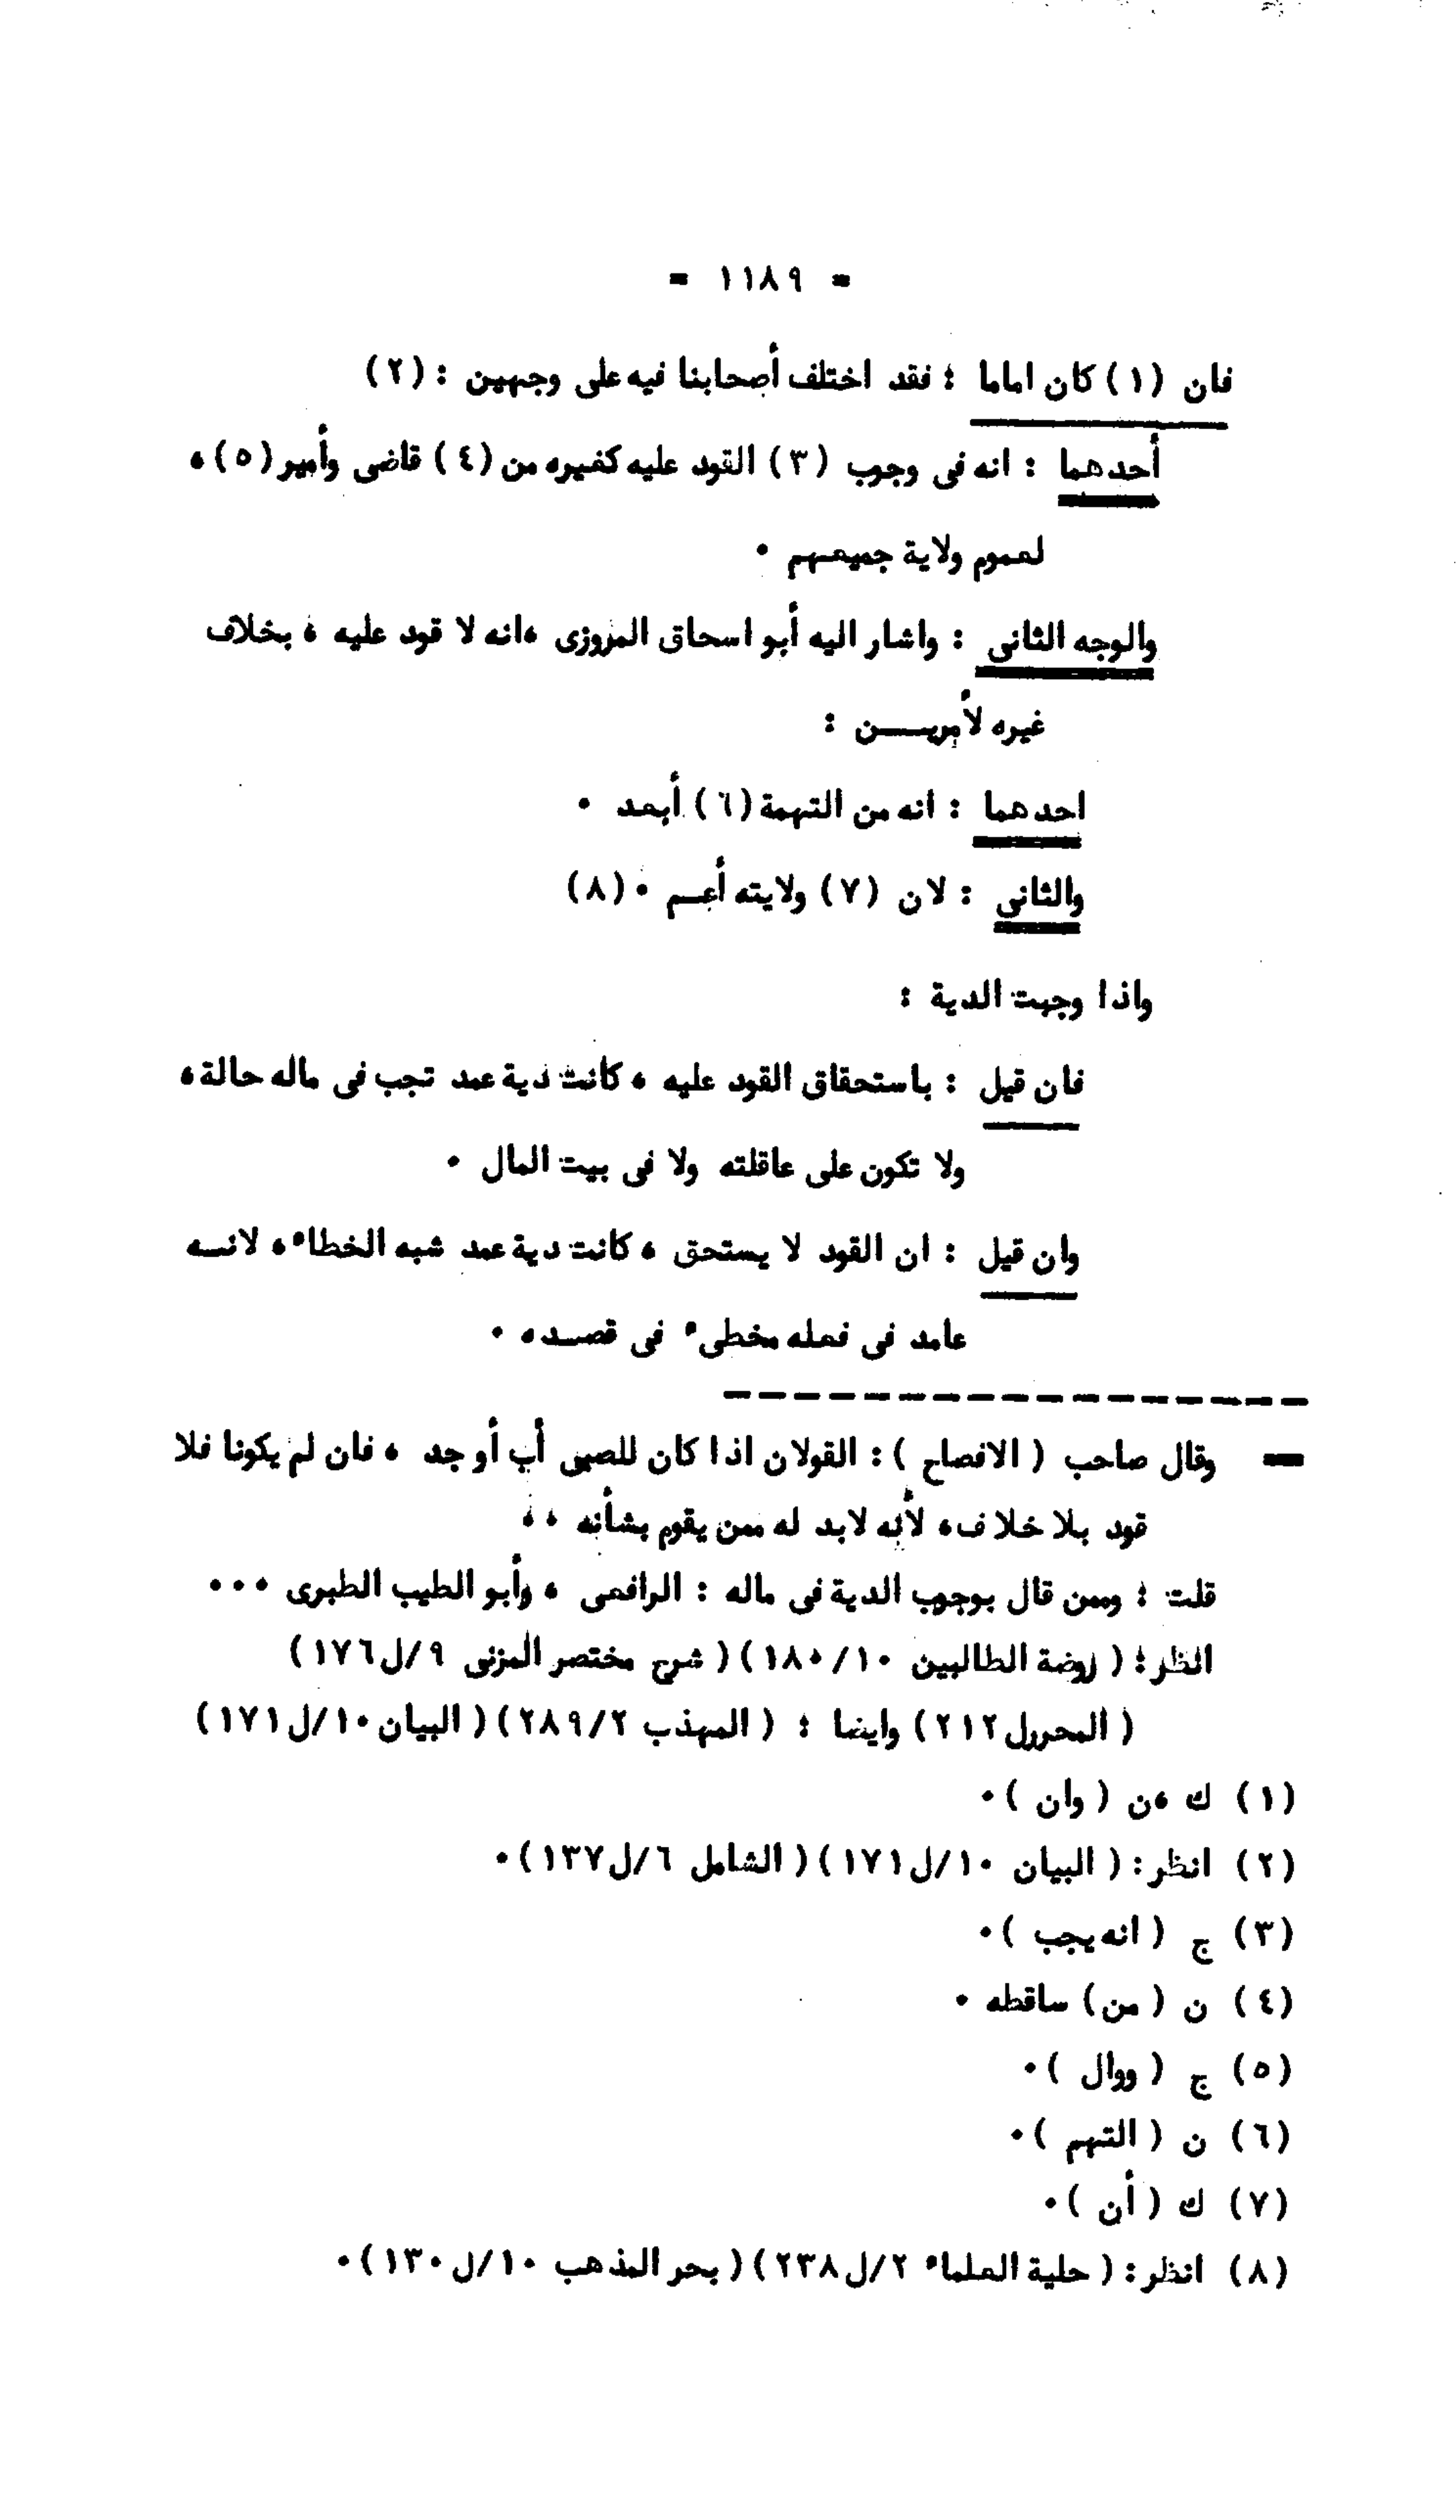 = ١١٨٩ =
فان (١) كان اماما : فقد اختلف أصحابنا فيه على وجهين : (٢)
أحدهما : انه فى وجوب (٣) القود عليه كغيره من (٤) قاضى وأمير (٥) ،
لعموم ولاية جميعهم ٠
والوجه الثانى : واشار اليه أبو اسحاق المروزى ،انه لا قود عليه ، بخلاف
غيره لأمريــــن :
احدهما : انه من التهمة (٦) أبعد ٠
والثانى : لان (٧) ولايته أعــم ٠ (٨)
واذا وجبت الدية :
فان قيل : باستحقاق القود عليه ، كانت دية عمد تجب فى ماله حالة ،
ولا تكون على عاقلته ولا فى بيت المال ٠
وان قيل : ان القود لا يستحق ، كانت دية عمد شبه الخطاء ، لانــه
عامد فى فعله مخطىء فى قصــده ٠
ـــ وقال صاحب ( الافصاح ) : القولان اذا كان للصبى أب أو جد ، فان لم يكونا فلا
قود بلا خلاف ، لأنه لابد له ممن يقوم بشأنه ٠٠
قلت : وممن قال بوجوب الدية فى ماله : الرافعى ، وأبو الطيب الطبرى ٠٠٠
انظر : ( روضة الطالبين ١٨٠/١٠) ( شرح مختصر المزنى ٩/ل١٧٦)
( المحررل٢١٢) وايضا : ( المهذب ٢٨٩/٢) ( البيان ١٠/ل١٧١)
(١) ك ،ن ( وان ) ٠
(٢) انظر : ( البيان ١٠/ل١٧١) ( الشامل ٦/ل١٣٧) ٠
(٣) ج ( انه يجب ) ٠
(٤) ن ( من ) ساقطه ٠
(٥) ج ( ووال ) ٠
(٦) ن ( التهم ) ٠
(٧) ك ( أن ) ٠
(٨) انظر : ( حلية العلماء ٢/ل٢٣٨) ( بحر المذهب ١٠/ل١٣٠) ٠